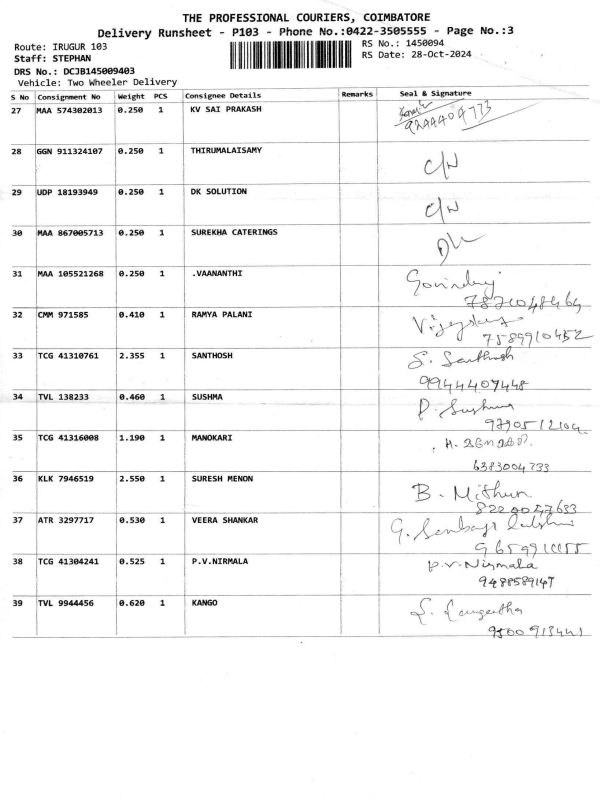 THE PROFESSIONAL COURIERS, COIMBATORE
Delivery Runsheet - P103 - Phone No.:0422-3505555 - Page No.:3
Route: IRUGUR 103 RS No.: 1450094
Staff: STEPHAN RS Date: 28-Oct-2024
DRS No.: DCJB145009403
Vehicle: Two Wheeler Delivery
S No Consignment No Weight PCS Consignee Details Remarks Seal & Signature
27 MAA 574302013 0.250 1 KV SAI PRAKASH
28 GGN 911324107 0.250 1 THIRUMALAISAMY C/N
29 UDP 18193949 0.250 1 DK SOLUTION C/N
30 MAA 867005713 0.250 1 SUREKHA CATERINGS
31 MAA 105521268 0.250 1 .VAANANTHI Govindraj
32 CMM 971585 0.410 1 RAMYA PALANI
7589910452
33 TCG 41310761 2.355 1 SANTHOSH S. Santhosh
9944407448
34 TVL 138233 0.460 1 SUSHMA P. Sushma
35 TCG 41316008 1.190 1 MANOKARI
6383004733
36 KLK 7946519 2.550 1 SURESH MENON B. Mithun
37 ATR 3297717 0.530 1 VEERA SHANKAR
38 TCG 41304241 0.525 1 P.V.NIRMALA P.V.Nirmala
9488589147
39 TVL 9944456 0.620 1 KANGO S. Sangeetha